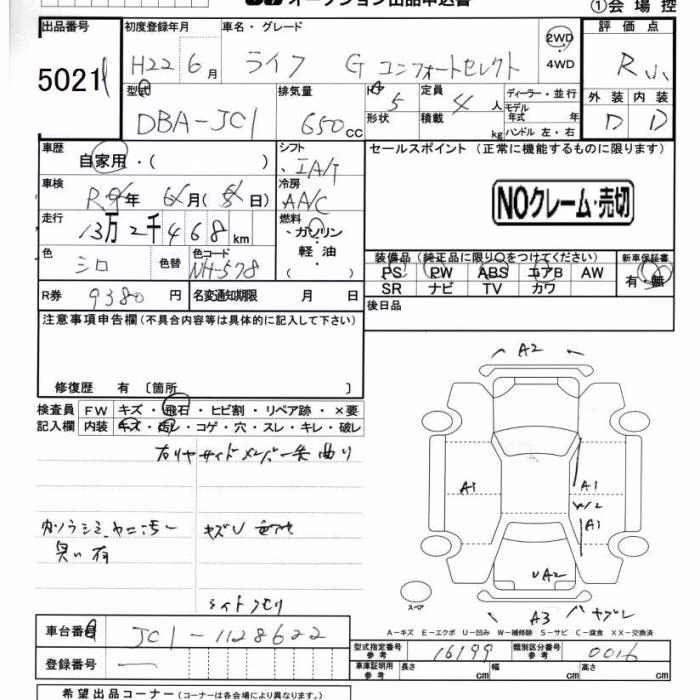 オークション出品申込書
①会場控
出品番号 初度登録年月 車名・グレード 評価点
5021 H22 6月 ライフ G コンフォートセレクト 2WD・4WD R小
型式 排気量 ドア 5 定員 4人 ディーラー・並行 外装 内装
DBA-JC1 650cc 形状 積載 kg モデル年式 年式 ハンドル 左・右 D D
車歴 自家用・( ) シフト IA/T セールスポイント(正常に機能するものに限ります)
車検 年 6月( 日) 冷房 AA/C NOクレーム・売切
走行 13万2千468km 燃料 ガソリン・軽油・( )
色 シロ 色替 色コード NH-578
装備品(純正品に限り○をつけてください) 新車保証書
PS PW ABS エアB AW 有・無
SR ナビ TV カワ
R券 9380円 名変通知期限 月 日 後日品
注意事項申告欄(不具合内容等は具体的に記入して下さい)
修復歴 有〔箇所 〕
検査員 FW キズ・飛石・ヒビ割・リペア跡・×要
記入欄 内装 キズ・汚レ・コゲ・穴・スレ・キレ・破レ
右リヤサイドメンバー先曲り
キズU
臭い有
ライトクモリ
A2
A1
A1
W2
A1
UA2
A3 ヤブレ
スペア
A-キズ E-エクボ U-凹み W-補修跡 S-サビ C-腐食 XX-交換済
車台番号 JC1-1128622
登録番号 —
型式指定番号 参考 16199 類別区分番号 参考 0016
車庫証明用 参考 長さ cm 幅 cm 高さ cm
希望出品コーナー(コーナーは各会場により異なります。)